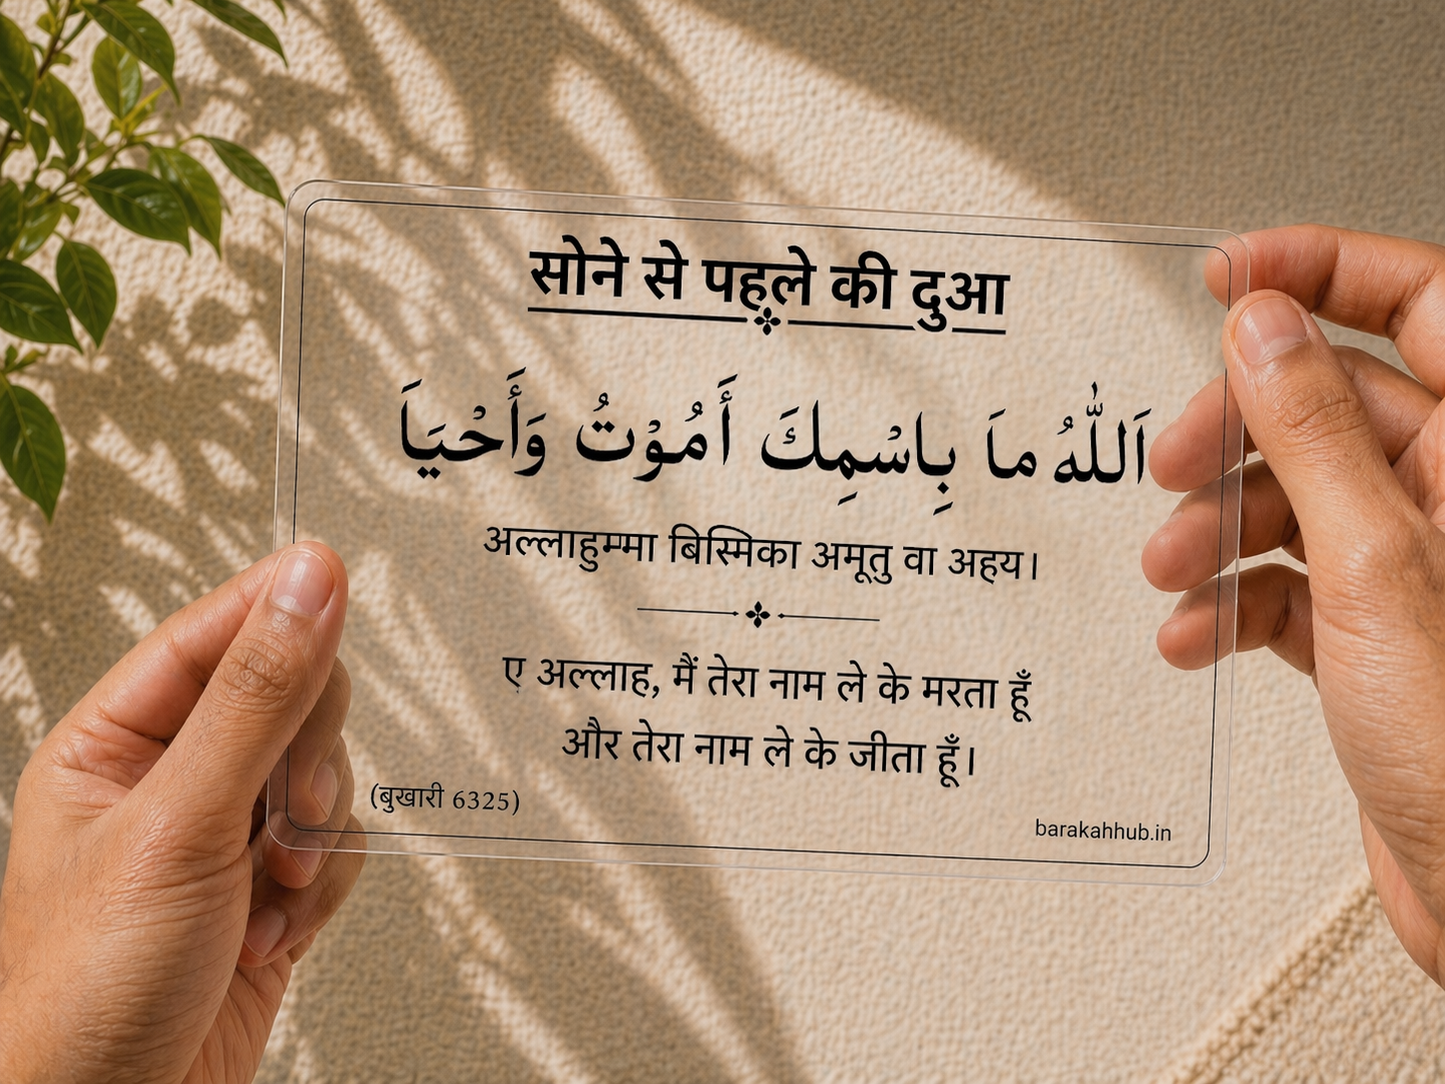 सोने से पहले की दुआ
اَللّٰهُ مَا بِاسْمِكَ أَمُوْتُ وَأَحْيَاَ
अल्लाहुम्मा बिस्मिका अमूतु वा अहय।
ए अल्लाह, मैं तेरा नाम ले के मरता हूँ
और तेरा नाम ले के जीता हूँ।
(बुखारी 6325)
barakahhub.in